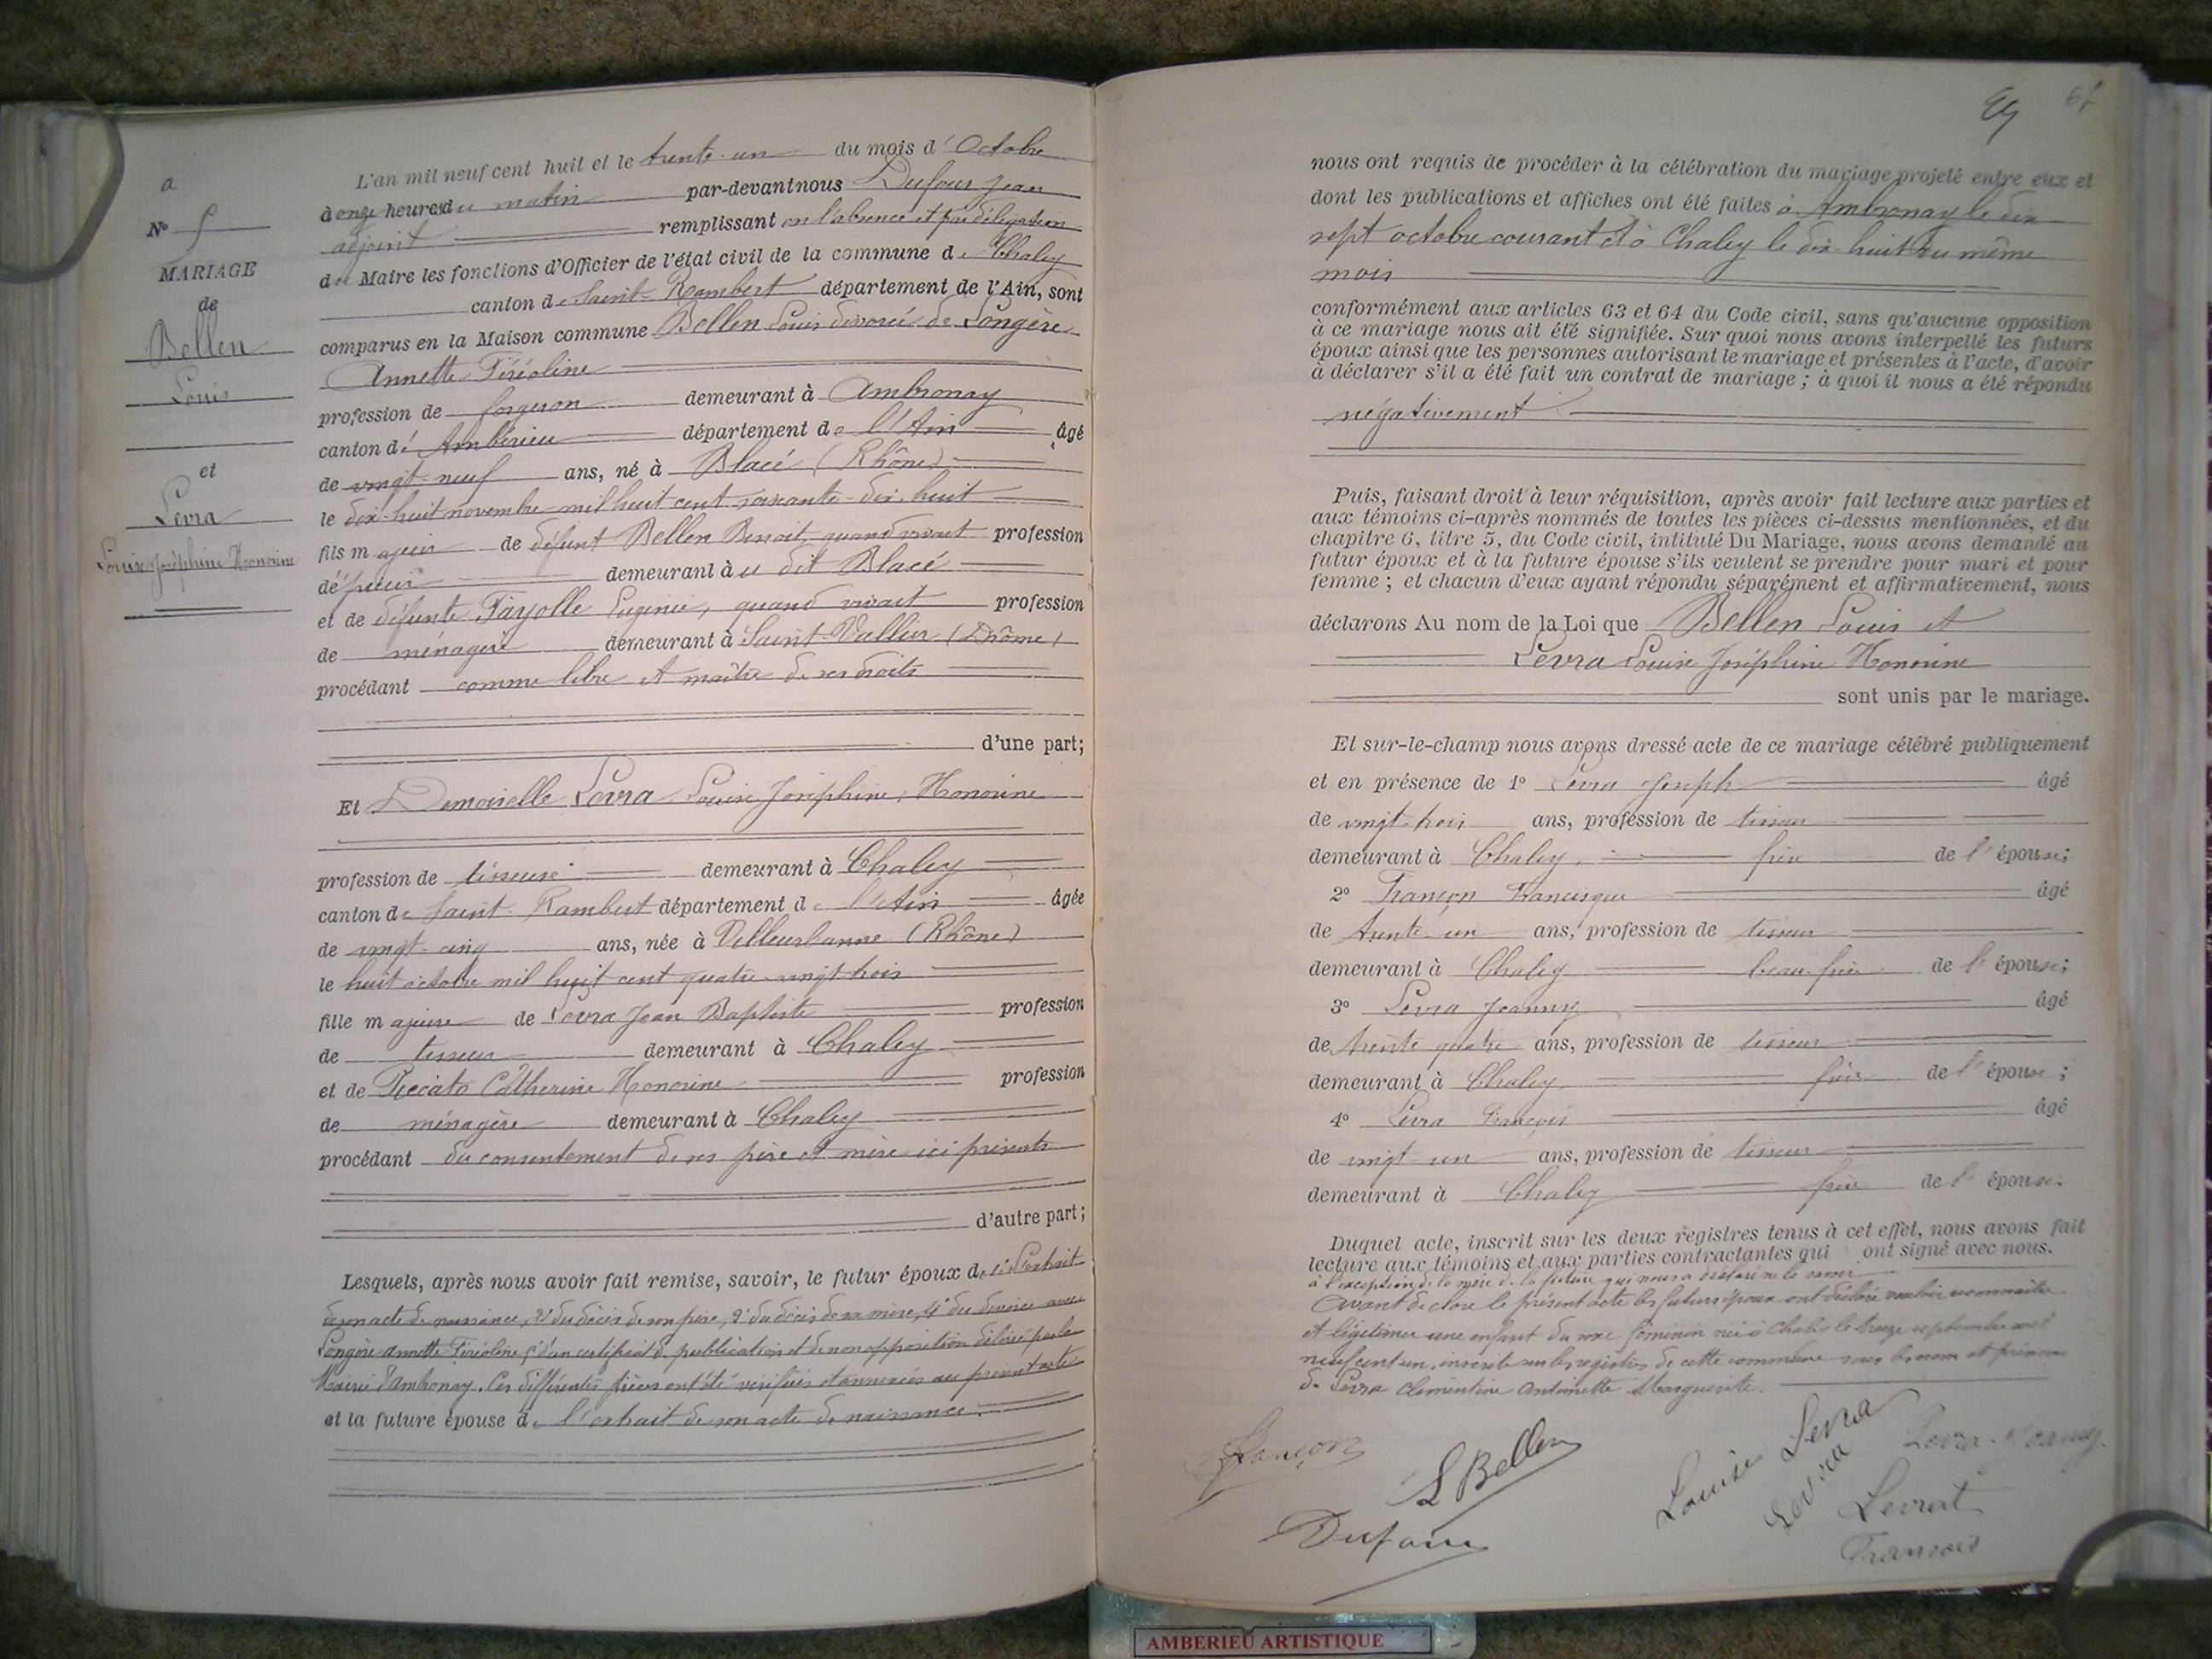 a
N° 5
MARIAGE
de
Bellen
Louis
et
Levra
Louise Joséphine Honorine
L'an mil neuf cent huit et le trente-un du mois d'Octobre
à onze heures du matin par-devant nous Dufour Jean
adjoint remplissant en l'absence et par délégation
du Maire les fonctions d'Officier de l'état civil de la commune de Chaley
canton de Saint-Rambert département de l'Ain, sont
comparus en la Maison commune Bellen Louis divorcé de Longère
Annette
profession de forgeron demeurant à Ambronay
canton d'Ambérieu département de l'Ain âgé
de vingt-neuf ans, né à Blacé (Rhône)
le dix-huit novembre mil huit cent soixante-dix-huit
fils majeur de défunt Bellen Benoit, quand vivait profession
de demeurant au dit Blacé
et de défunte Fayolle Eugénie, quand vivait profession
de ménagère demeurant à Saint-Vallier (Drôme)
procédant comme libre et maître de ses droits
d'une part;
Et Demoiselle Levra Louise Joséphine, Honorine
profession de tisseuse demeurant à Chaley
canton de Saint-Rambert département de l'Ain âgée
de vingt-cinq ans, née à Villeurbanne (Rhône)
le huit octobre mil huit cent quatre-vingt trois
fille majeure de Levra Jean Baptiste profession
de tisseur demeurant à Chaley
et de Catherine Honorine profession
de ménagère demeurant à Chaley
procédant du consentement de ses père et mère ici présents
d'autre part;
Lesquels, après nous avoir fait remise, savoir, le futur époux de 1° l'extrait
de son acte de naissance, 2° du décès de son père, 3° du décès de sa mère, 4° du divorce avec
Longère Annette 5° d'un certificat de publication et de non opposition délivré par la
Mairie d'Ambronay. Ces différentes pièces ont été vérifiées et annexées au présent acte
et la future épouse de l'extrait de son acte de naissance.
67
nous ont requis de procéder à la célébration du mariage projeté entre eux et
dont les publications et affiches ont été faites à Ambronay le dix
sept octobre courant et à Chaley le dix huit du même
mois
conformément aux articles 63 et 64 du Code civil, sans qu'aucune opposition
à ce mariage nous ait été signifiée. Sur quoi nous avons interpellé les futurs
époux ainsi que les personnes autorisant le mariage et présentes à l'acte, d'avoir
à déclarer s'il a été fait un contrat de mariage; à quoi il nous a été répondu
négativement
Puis, faisant droit à leur réquisition, après avoir fait lecture aux parties et
aux témoins ci-après nommés de toutes les pièces ci-dessus mentionnées, et du
chapitre 6, titre 5, du Code civil, intitulé Du Mariage, nous avons demandé au
futur époux et à la future épouse s'ils veulent se prendre pour mari et pour
femme; et chacun d'eux ayant répondu séparément et affirmativement, nous
déclarons Au nom de la Loi que Bellen Louis et
Levra Louise Joséphine Honorine
sont unis par le mariage.
Et sur-le-champ nous avons dressé acte de ce mariage célébré publiquement
et en présence de 1° Levra Joseph âgé
de vingt-trois ans, profession de tisseur
demeurant à Chaley frère de l'épouse;
2° Françon Francisque âgé
de trente-un ans, profession de tisseur
demeurant à Chaley beau-frère de l'épouse;
3° Levra Joanny âgé
de trente quatre ans, profession de tisseur
demeurant à Chaley frère de l'épouse;
4° Levra François âgé
de vingt-un ans, profession de tisseur
demeurant à Chaley frère de l'épouse.
Duquel acte, inscrit sur les deux registres tenus à cet effet, nous avons fait
lecture aux témoins et aux parties contractantes qui ont signé avec nous.
à l'exception de la mère de la future qui nous a déclaré ne le savoir
Avant de clore le présent acte les futurs époux ont déclaré vouloir reconnaître
et légitimer une enfant du sexe féminin née à Chaley le treize septembre mil
neuf cent un, inscrite sur les registres de cette commune sous les nom et prénoms
de Levra Clémentine Antoinette Marguerite.
Françon
L Bellen
Louise Levra
Levra
Levra Joanny
Dufour
Levrat
François
AMBERIEU ARTISTIQUE